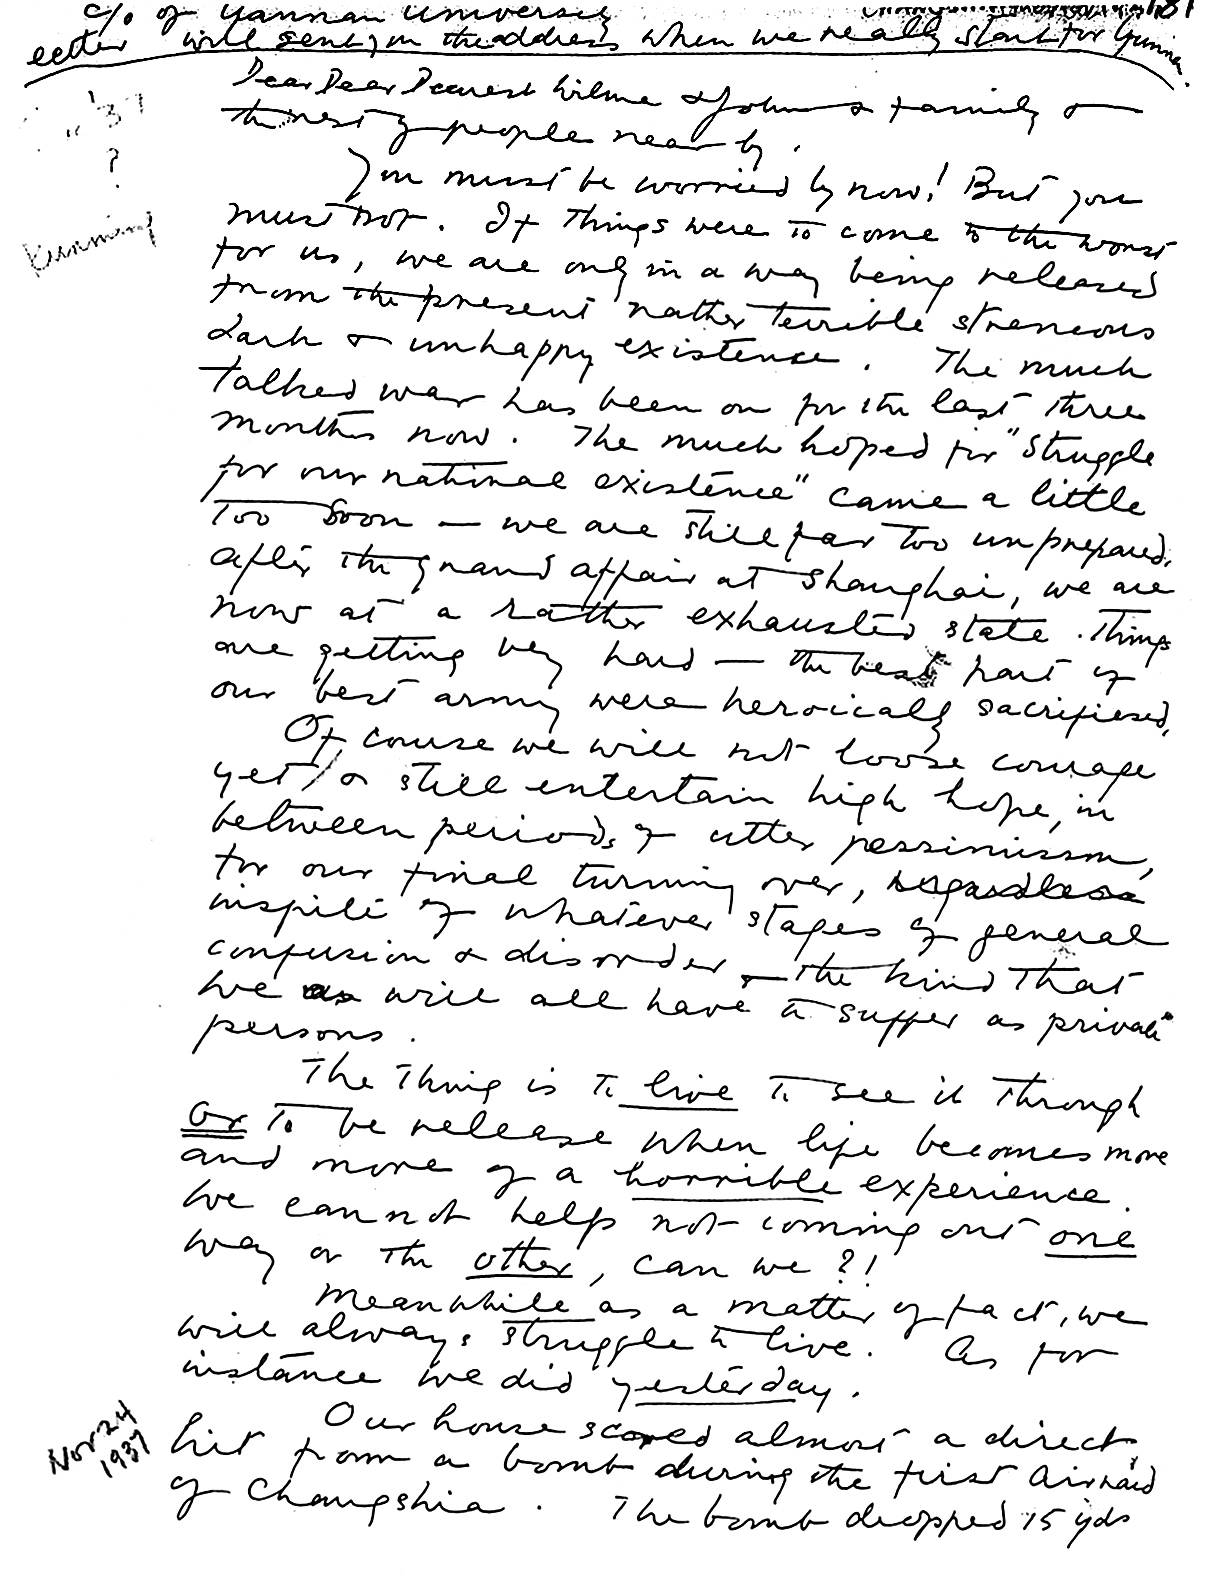 c/o of Yannan University
will sent, in the address when we really start for Yunnan.
Dear Dear Dearest Wilma & John & family &
the rest of people near by.
You must be worried by now! But you
must not. If things were to come to the worst
for us, we are only in a way being released
from the present rather terrible streneous
dark & unhappy existence. The much
talked war has been on for the last three
months now. The much hoped for "struggle
for our national existence" came a little
too soon — we are still far too unprepared.
After the grand affair at Shanghai, we are
now at a rather exhausted state. Things
are getting very hard — the best part of
our best army were heroically sacrificed.
Of course we will not loose courage
yet, & still entertain high hope, in
between periods of utter pessimissm,
for our final turning over, regardless
inspite of whatever stages of general
confusion & disorder — the kind that
we as will all have to suffer as private
persons.
The thing is to live to see it through
or to be release when life becomes more
and more of a horrible experience.
We cannot help not coming out one
way or the other, can we?!
Meanwhile as a matter of fact, we
will always struggle to live. As for
instance we did yesterday.
Our house scored almost a direct
hit from a bomb during the first airraid
of Changshia. The bomb dropped 15 yds
'37
?
Kunming
Nov 24
1937